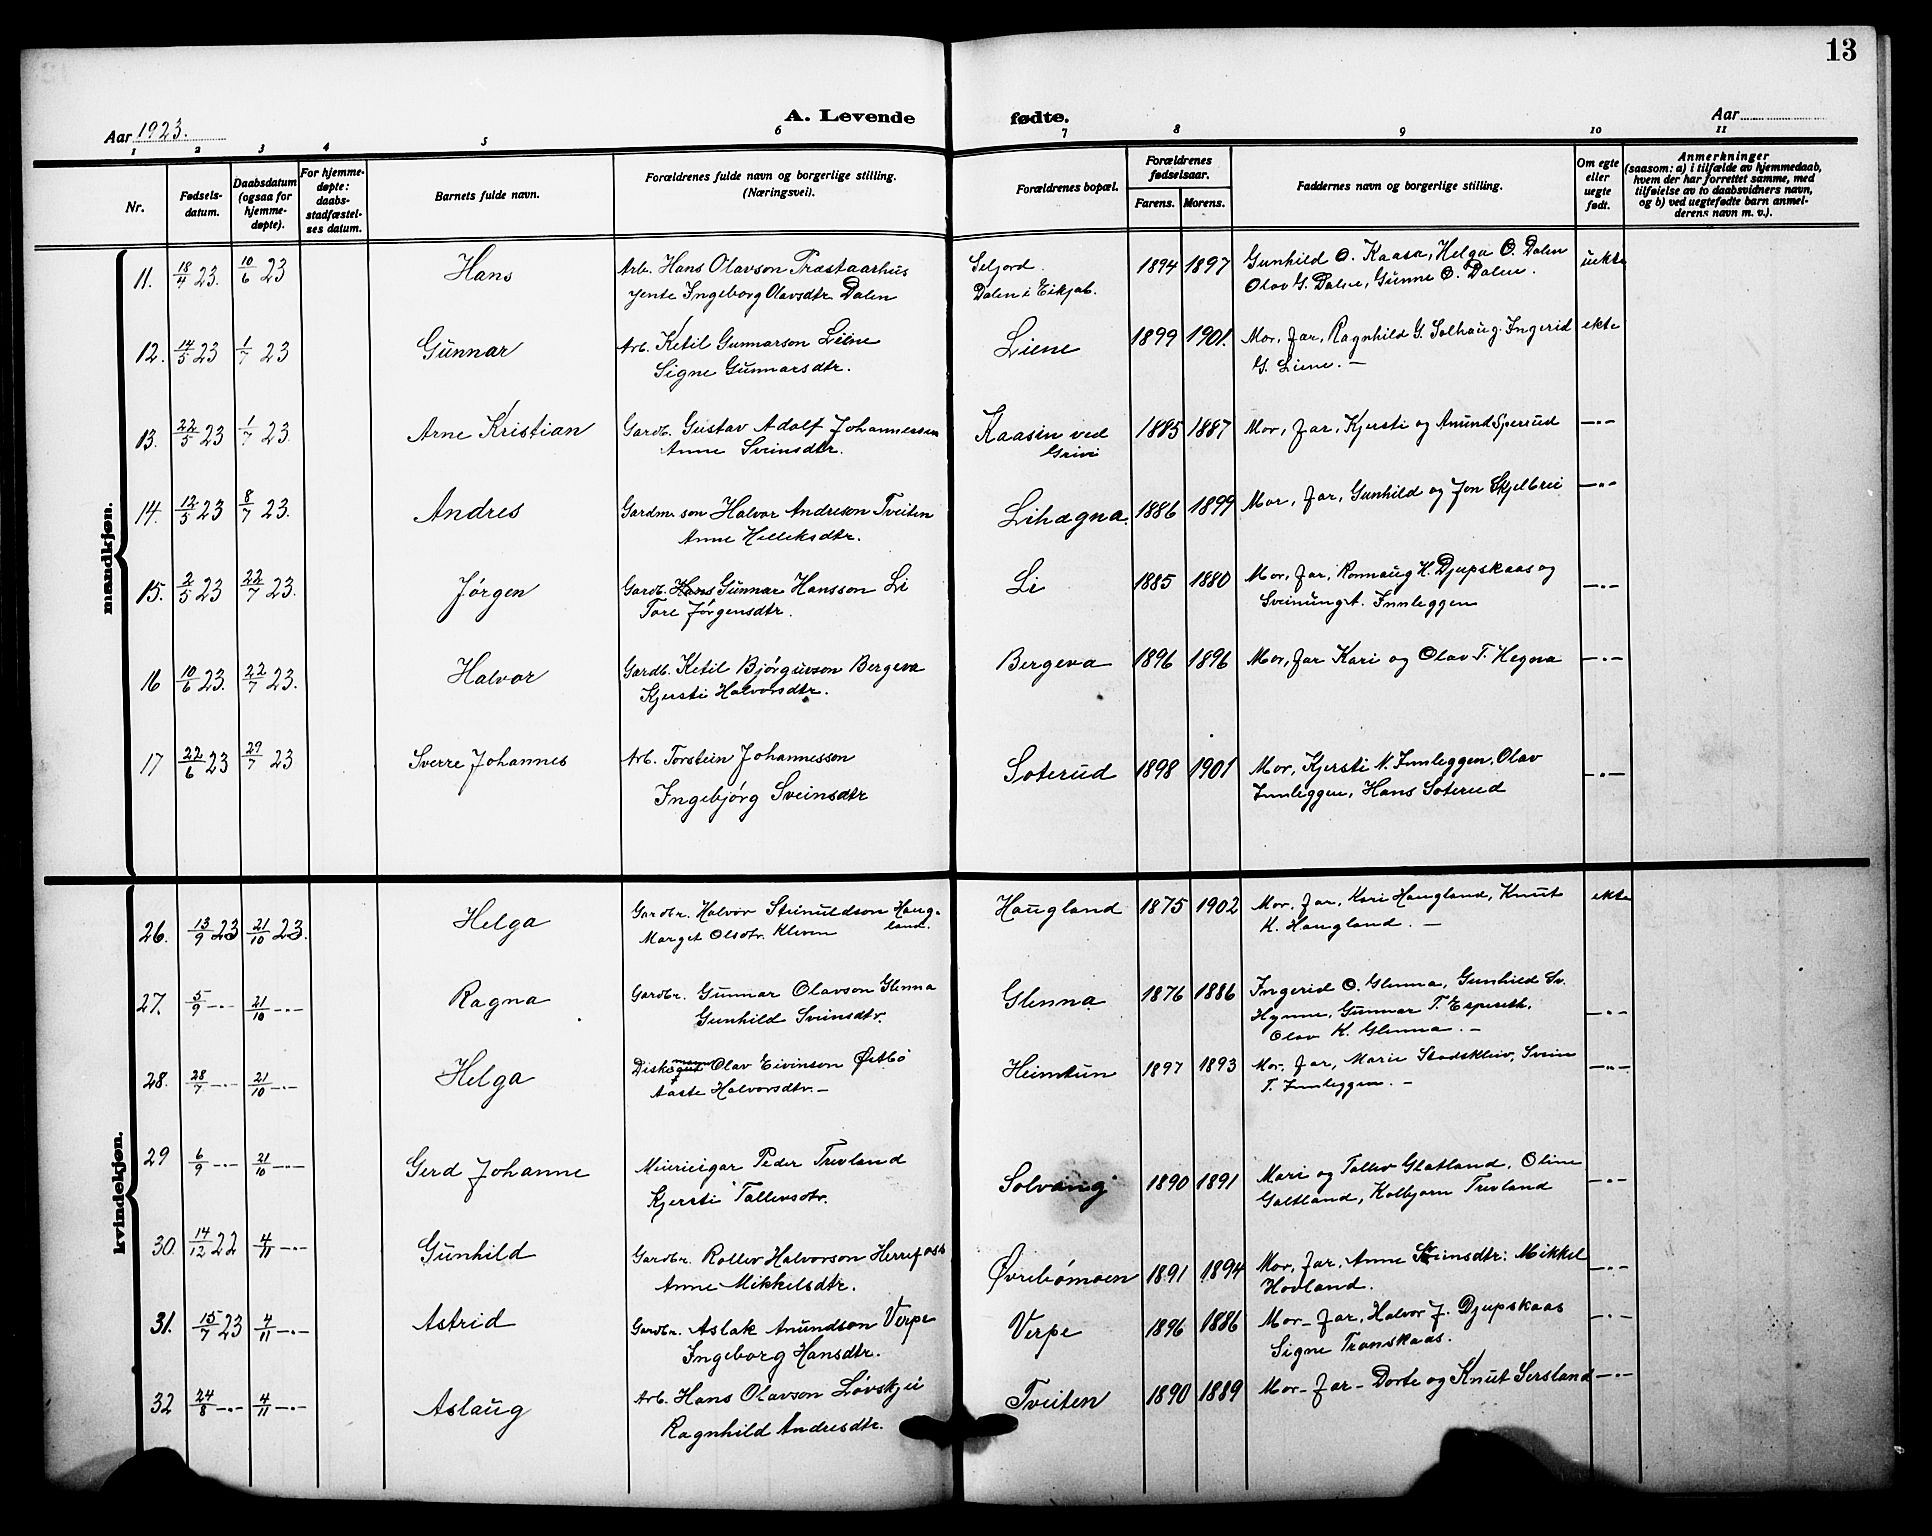 13
Aar 1923.
A. Levende fødte.
Aar
1 2 3 4 5 6 7 8 9 10 11
Nr.
Fødsels-
datum.
Daabsdatum
(ogsaa for
hjemme-
døpte).
For hjemme-
døpte:
daabs-
stadfæstel-
ses datum.
Barnets fulde navn.
Forældrenes fulde navn og borgerlige stilling.
(Næringsvei).
Forældrenes bopæl.
Forældrenes
fødselsaar.
Farens. Morens.
Faddernes navn og borgerlige stilling.
Om egte
eller
uegte
født.
Anmerkninger
(saasom: a) i tilfælde av hjemmedaab,
hvem der har forrettet samme, med
tilføielse av to daabsvidners navn,
og b) ved uegtefødte barn anmel-
derens navn m. v.).
mandkjøn.
11. 18/4 23. 10/6 23 Hans Arb. Hans Olavson Præstaarhus Seljord. 1894 1897 Gunhild O. Kaasa, Helga O. Dalen uekte
jente Ingeborg Olavsdtr. Dalen Dalen i Eikjab. Olav G. Dalen, Gunne O. Dalen.
12. 14/5 23 1/7 23 Gunnar Arb. Ketil Gunnarson Liene Liene 1899 1901. Mor, Far, Ragnhild G. Solhaug. Ingerid ekte
Signe Gunnarsdtr. G. Liene. —
13. 22/5 23 1/7 23. Arne Kristian Gardb. Gustav Adolf Johannessen Kaasin ved 1885 1887 Mor, Far, Kjersti og Anund Sperud —"—
Anne Sveinsdtr. Grivi
14. 12/5 23 8/7 23. Andres Gardm. son Halvor Andreson Tveiten Lihægna 1886 1899 Mor, Far, Gunhild og Jon Skjelbrei —"—
Anne Helleksdtr.
15. 2/5 23 22/7 23. Jørgen Gardb. Hans Gunnar Hansson Li Li 1885 1880 Mor, Far, Ronnaug H. Djupskaas og —"—
Tore Jørgensdtr. Sveinung A. Innleggen
16 10/6 23. 22/7 23. Halvor Gardb. Ketil Bjørguvson Bergeva Bergeva 1896 1896 Mor, Far Kari og Olav T. Hegna —"—
Kjersti Halvorsdtr.
17 22/6 23 29/7 23 Sverre Johannes Arb. Torstein Johannesson Soterud 1898 1901 Mor, Kjersti N. Innleggen, Olav —"—
Ingebjørg Sveinsdtr Innleggen, Hans Soterud
kvindekjøn.
26. 13/9 23 21/10 23. Helga Gardbr. Halvor Steinuldson Haug- Haugland 1875 1902 Mor. Far, Kari Haugland, Knut ekte
Marget Olsdtr. Kleven land. K. Haugland. —
27. 5/9 —"— 21/10 —"— Ragna Gardbr. Gunnar Olavson Glenna Glenna 1876 1886 Ingerid O. Glenna, Gunhild Sv. —"—
Gunhild Sveinsdtr. Hynne, Gunnar T. Espeseth,
Olav K. Glenna. —
28. 28/7 —"— 21/10 —"— Helga Diskomann Olav Eivinson Østbø Heimtun 1897 1893 Mor, Far, Marie Stadskleiv, Svein —"—
Aaste Halvorsdtr. — T. Innleggen. —
29 6/9 —"— 21/10 —"— Gerd Johanne Meierieigar Peder Trevland Solvang 1890 1891 Mari og Tallev Glatland, Oline —"—
Kjersti Tallevsdtr. Galtland, Kolbjørn Trevland
30. 14/12 22 4/11 —"— Gunhild Gardbr. Rollev Halvorson Herrefoss Øvrebømoen 1891 1894 Mor, Far, Anne Steinsdtr: Mikkel —"—
Anne Mikkelsdtr. Hovland.
31. 15/7 23 4/11 —"— Astrid Gardbr. Aslak Anundson Verpe Verpe 1896 1886 Mor — Far, Halvor J. Djupskaas —"—
Ingeborg Hansdtr. Signe Transkaas.
32 24/8 —"— 4/11 —"— Aslaug Arb. Hans Olavson Løvskjei Tveiten 1890 1889 Mor — Far — Dorte og Knut Sersland —"—
Ragnhild Andresdtr.